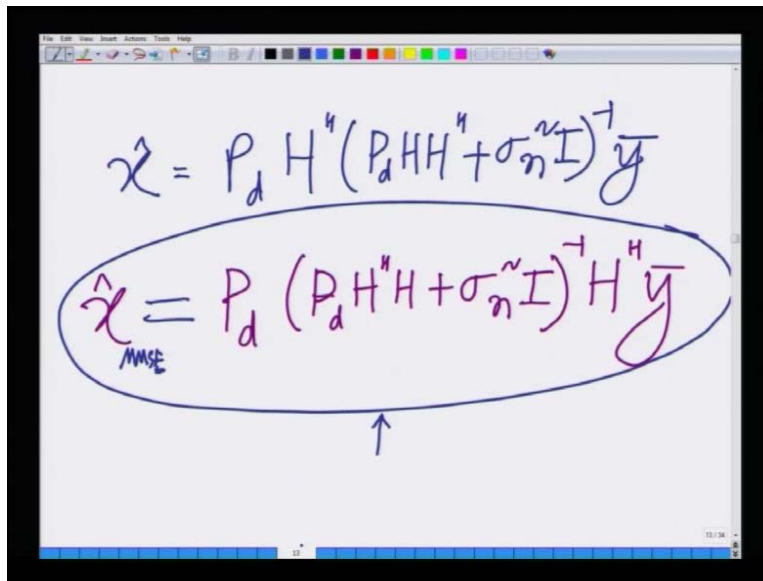 File Edit View Insert Actions Tools Help
x̂ = P_d H^H (P_d HH^H + σ_n^2 I)^-1 ȳ
x̂_MMSE = P_d (P_d H^H H + σ_n^2 I)^-1 H^H ȳ
13 / 34
13